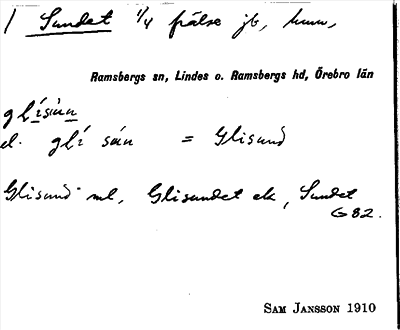 / Sundet 1/4 frälse jb, hmn,
Ramsbergs sn, Lindes o. Ramsbergs hd, Örebro län
glísùnn
el. glí sún = Glisund
Glisund ml, Glisundet ek, Sundet
G 82.
SAM JANSSON 1910